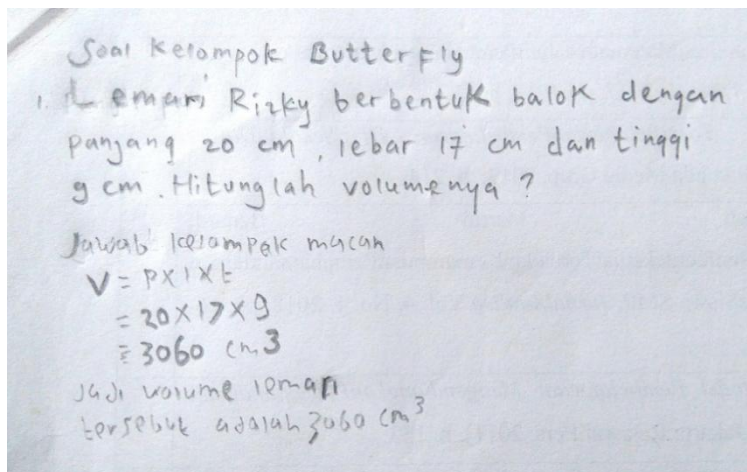 Soal Kelompok Butterfly
1. Lemari Rizky berbentuk balok dengan
panjang 20 cm, lebar 17 cm dan tinggi
9 cm. Hitunglah volumenya ?
Jawab kelompok macan
V = P x l x t
= 20 x 17 x 9
= 3060 cm3
Jadi volume lemari
tersebut adalah 3060 cm³